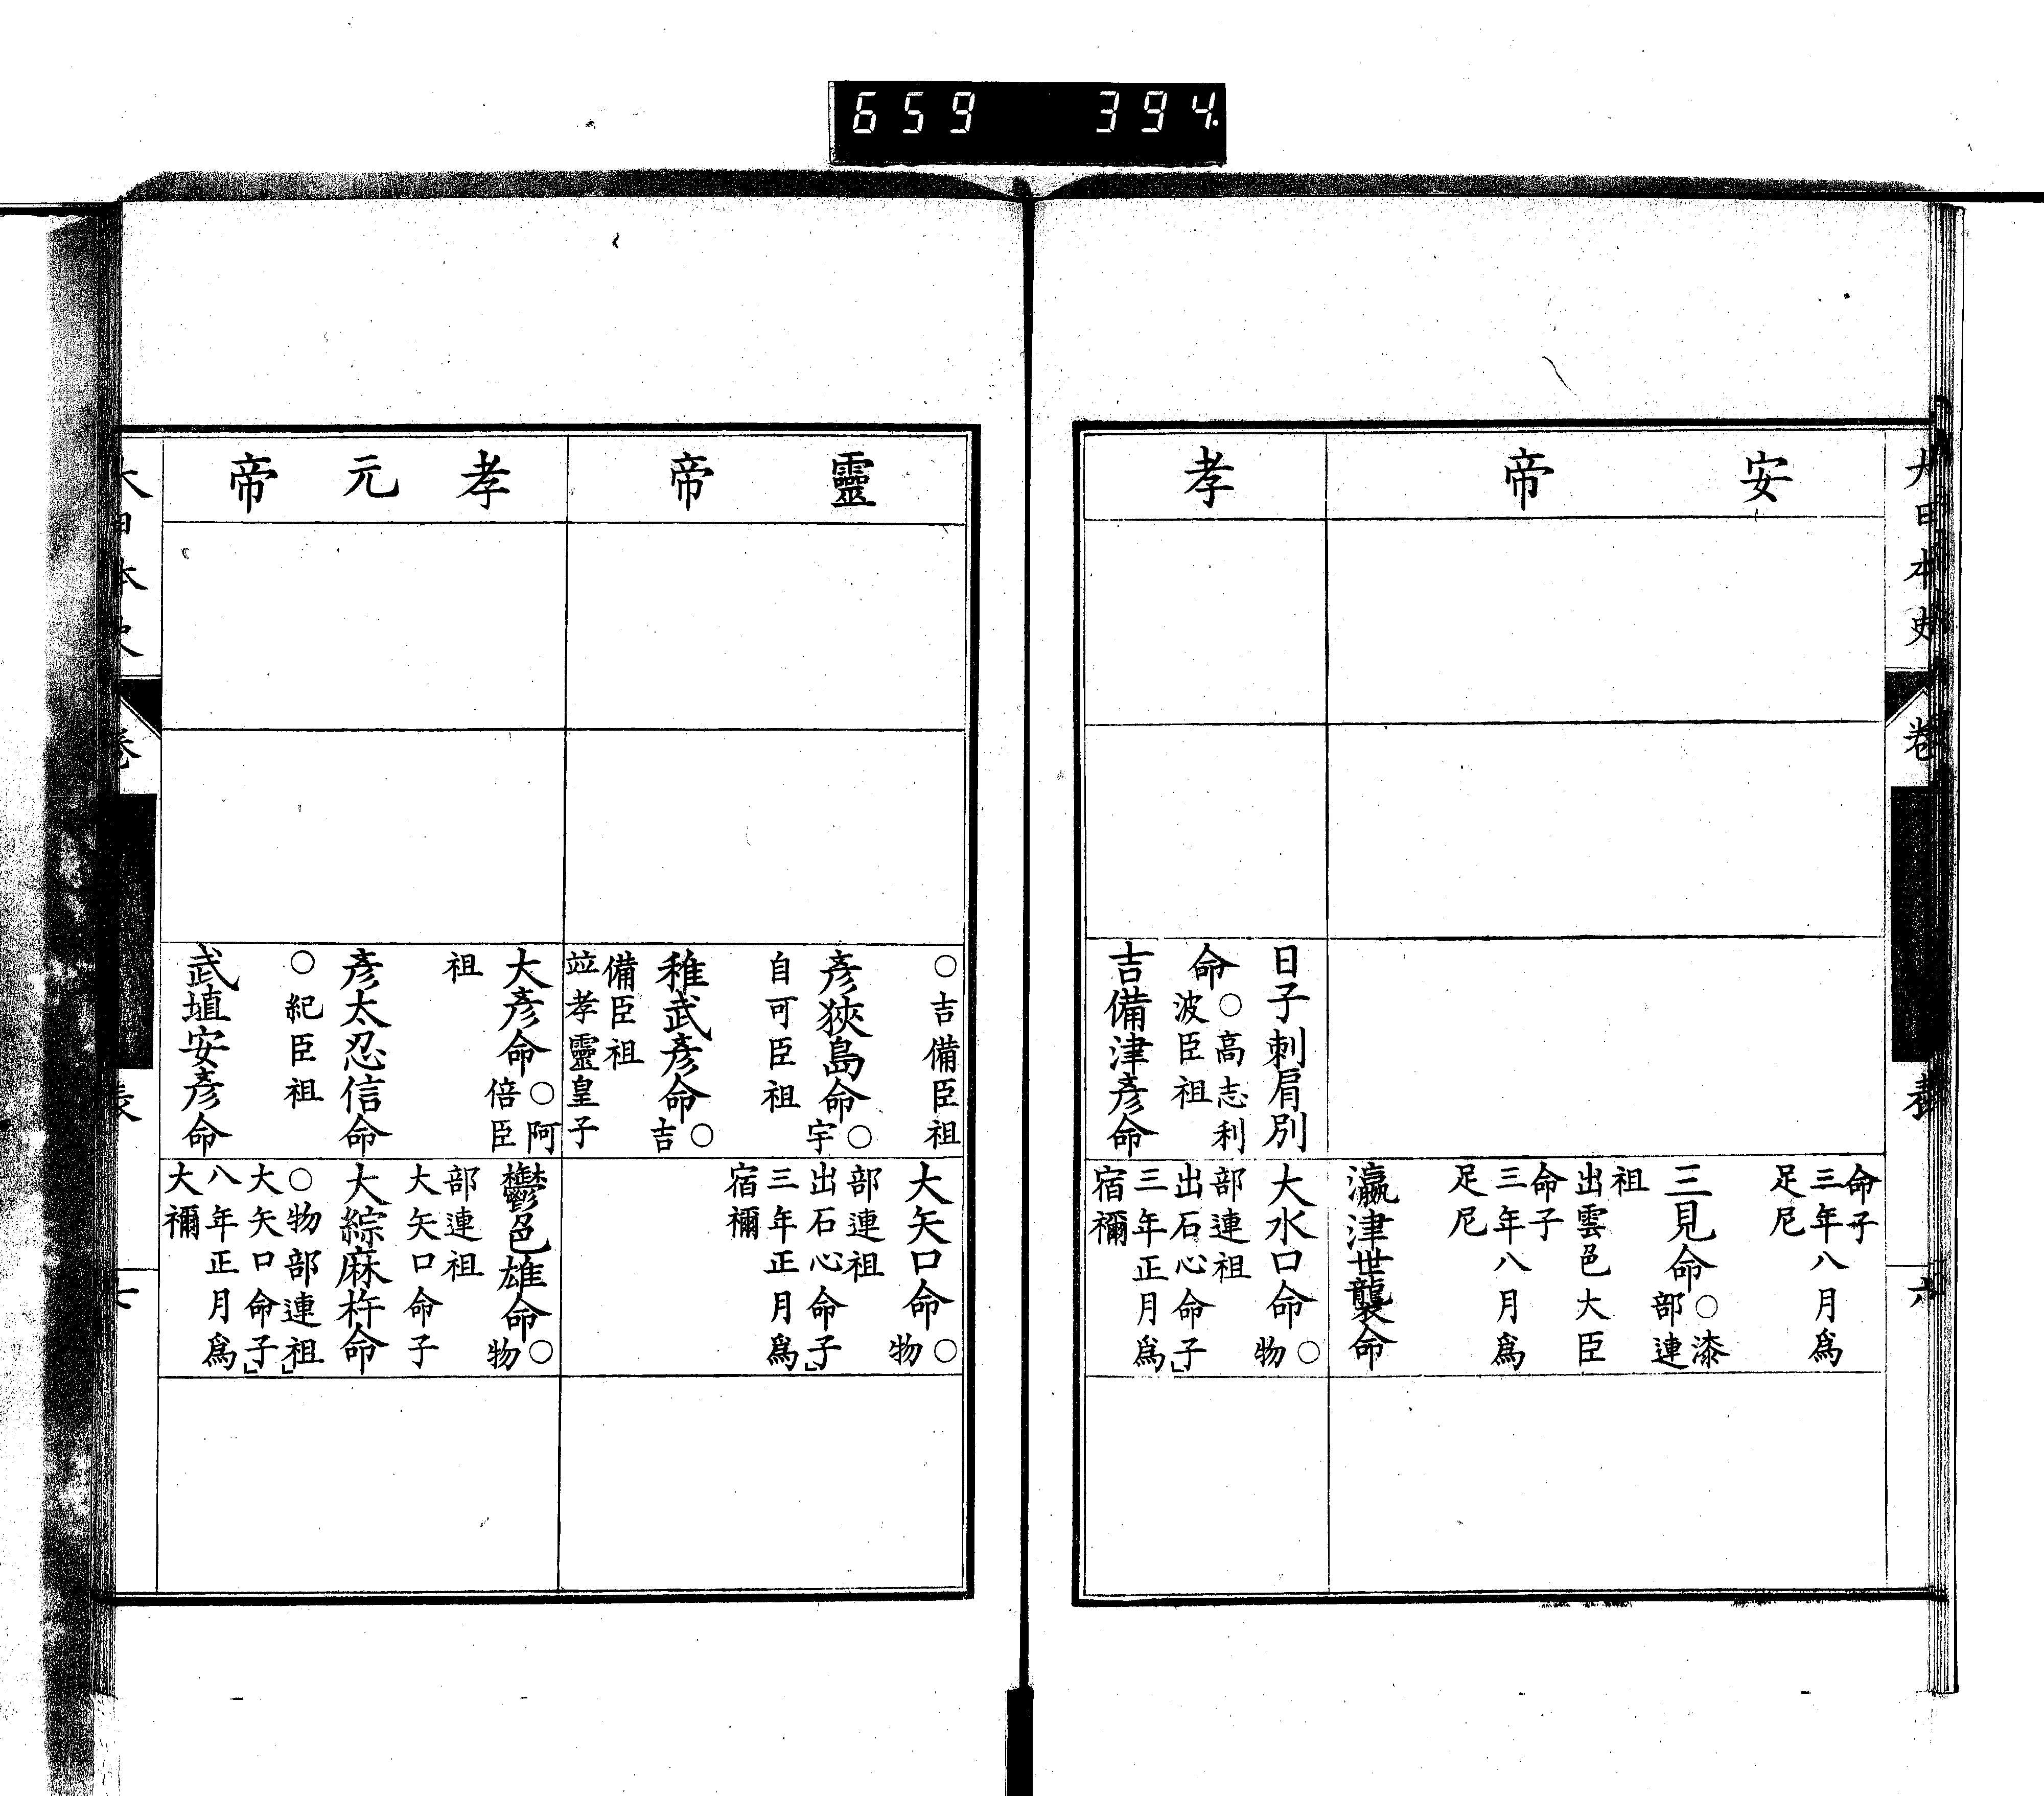 659 394
大日本史
卷
表
六
安帝
孝
命子
三年八月爲
足尼
三見命○漆
部連
祖
出雲色大臣
命子
三年八月爲
足尼
瀛津世襲命
日子刺肩別
命○高志利
波臣祖
吉備津彥命
大水口命○
物
部連祖
出石心命子」
三年正月爲
宿禰
靈帝
孝元帝
○吉備臣祖
彥狹島命○
宇
自可臣祖
稚武彥命○
吉
備臣祖
竝孝靈皇子
大矢口命○
物
部連祖
出石心命子」
三年正月爲
宿禰
大彥命○阿
倍臣
祖
彥太忍信命
○紀臣祖
武埴安彥命
鬱色雄命○
物
部連祖
大矢口命子
大綜麻杵命
○物部連祖」
大矢口命子」
八年正月爲
大禰